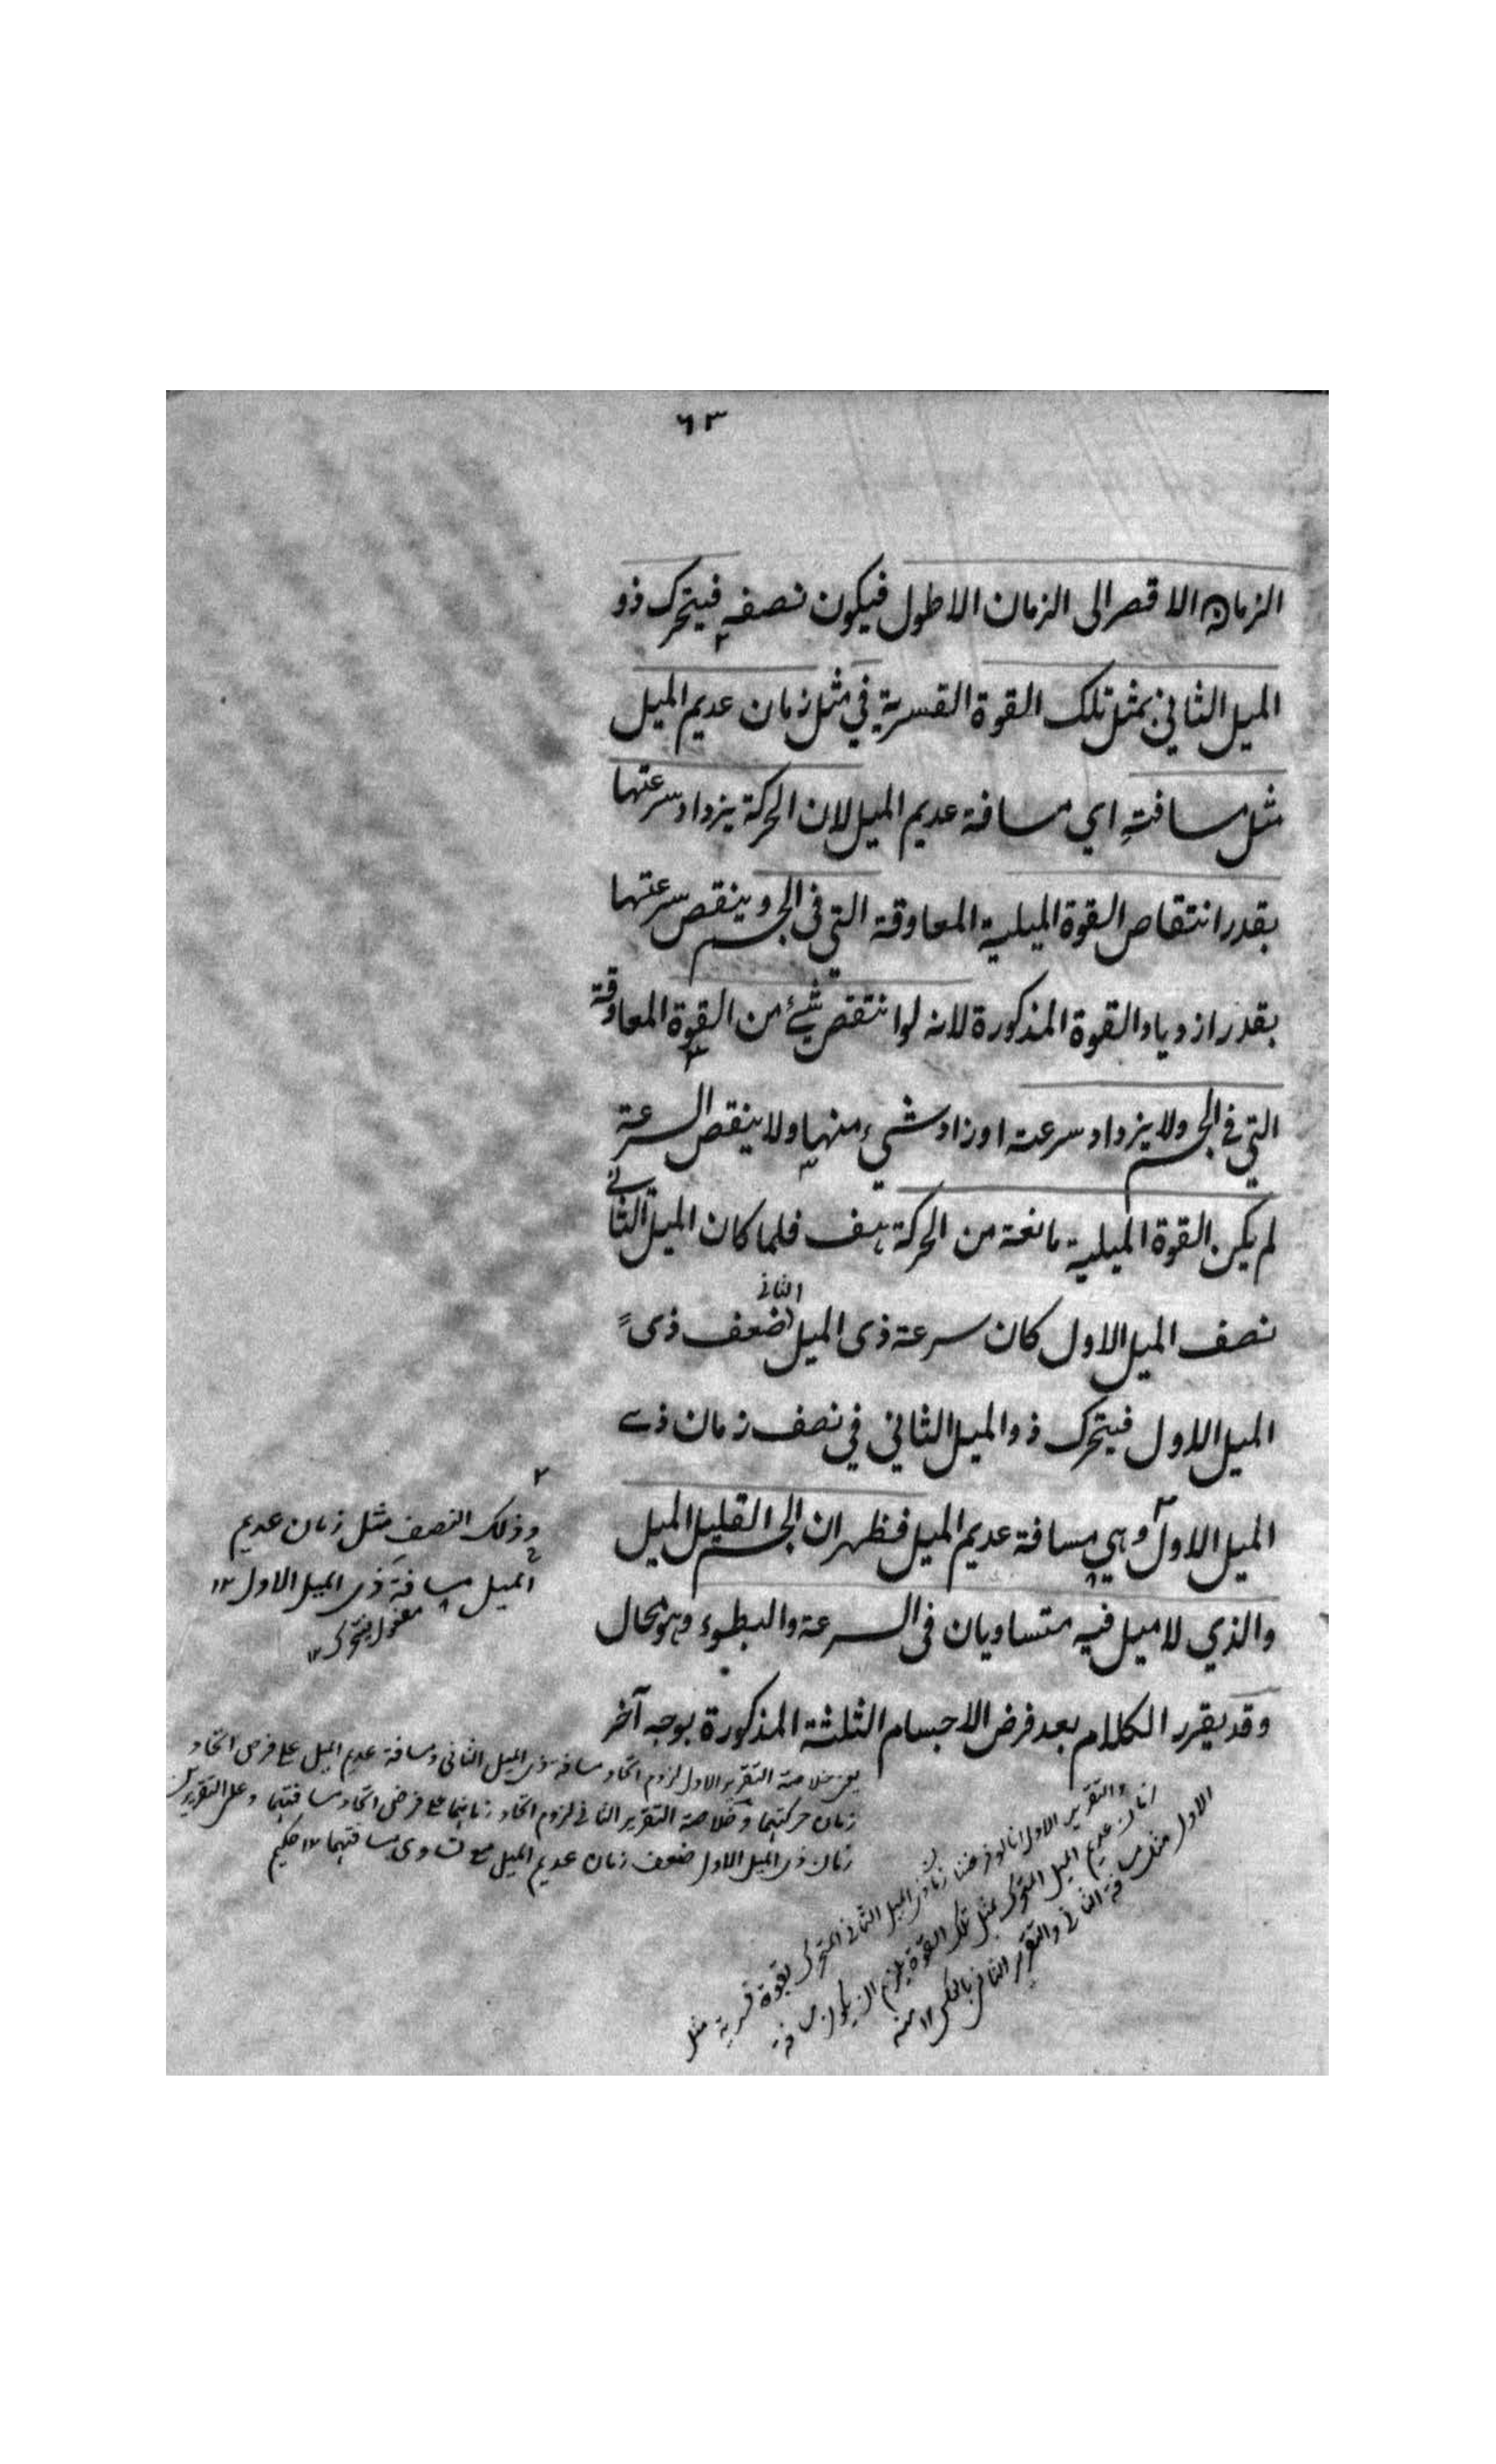 ٦٣
الزمان الاقصر الى الزمان الاطول فيكون نصفه فيتحرك ذو
الميل الثاني بمثل تلك القوة القسرية في مثل زمان عديم الميل
مثل مسافته اي مسافة عديم الميل لان الحركة يزداد سرعتها
بقدر انتقاص القوة الميلية المعاوقة التي في الجسم وينقص سرعتها
بقدر ازدياد القوة المذكورة لانه لو انتقص شئ من القوة المعاوقة
التي في الجسم ولا يزداد سرعته او زاد شيء منها ولا ينقص السرعة
لم يكن القوة الميلية مانعة من الحركة هف فلما كان الميل الثاني
نصف الميل الاول كان سرعة ذى الميل الثانى ضعف ذى
الميل الاول فيتحرك ذو الميل الثاني في نصف زمان ذى
الميل الاول وهي مسافة عديم الميل فظهر ان الجسم القليل الميل
والذي لا ميل فيه متساويان فى السرعة والبطوء وهو محال
وقد يقرر الكلام بعد فرض الاجسام الثلثة المذكورة بوجه آخر
وذلك النصف مثل زمان عديم
الميل مسافة ذى الميل الاول ١٢
مفعول يتحرك ١٢
يعنى خلاصة التقرير الاول لزوم اتحاد مسافة ذى الميل الثانى ومسافة عديم الميل على فرض اتحاد
زمان حركتيهما وخلاصة التقرير الثانى لزوم اتحاد زمانيهما على فرض اتحاد مسافتيهما وعلى التقريرين
زمان ذى الميل الاول ضعف زمان عديم الميل مع تساوى مسافتيهما ١٢ حكيم
والتقرير الاول انا لو فرضنا زمان ذى الميل الثانى المتحرك بقوة قسرية مثل
زمان عديم الميل المتحرك بمثل تلك القوة يلزم ان يكون مسافة
الاول مثل مسافة الثانى والتقرير الثانى بالعكس ١٢ منه